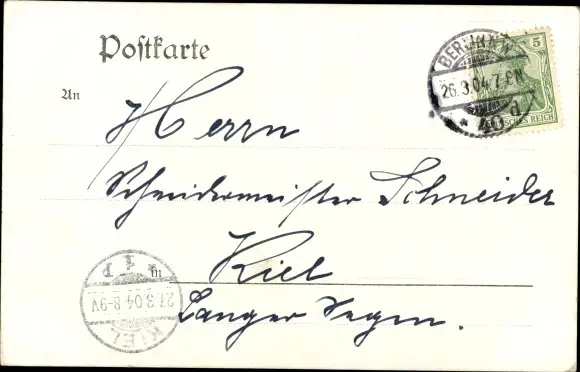 Postkarte
An
Herrn
Schneidermeister Schneider
in
Kiel
Langer Segen.
BERLIN N.W.
26.3.04.7-8N
* 40 d
5
DEUTSCHES REICH
KIEL
27.3.04.8-9V
* 1 P